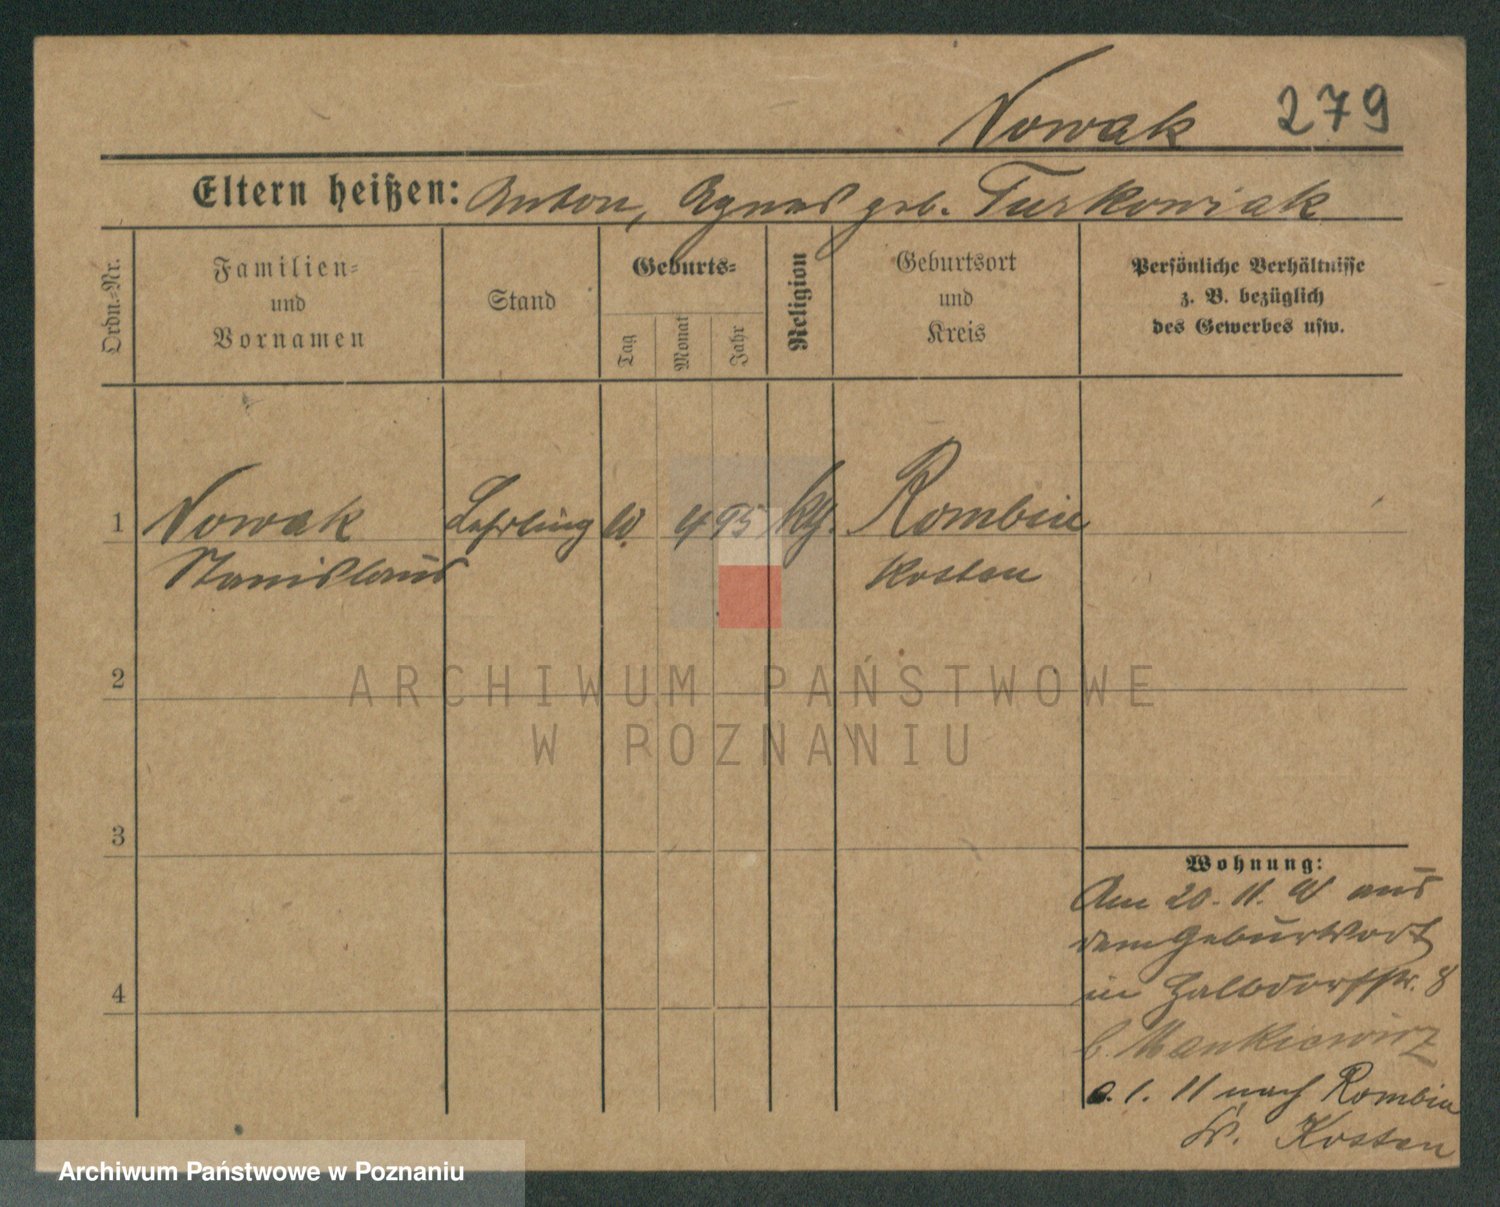 Nowak 279
Eltern heißen: Anton, Agnes geb. Turkowiak
Ordn.-Nr.
Familien-
und
Vornamen
Stand
Geburts-
Tag
Monat
Jahr
Religion
Geburtsort
und
Kreis
Persönliche Verhältnisse
z. B. bezüglich
des Gewerbes usw.
1 Nowak Lehrling 4 95 kth. Rombin
Stanislaus Kosten
2
3
4
Wohnung:
Am 20. 11. aus
dem Geburtsort
in Halbdorfstr. 8
b. Mankiewicz
1. 11 nach Rombin
Kr. Kosten
ARCHIWUM PAŃSTWOWE
W POZNANIU
Archiwum Państwowe w Poznaniu